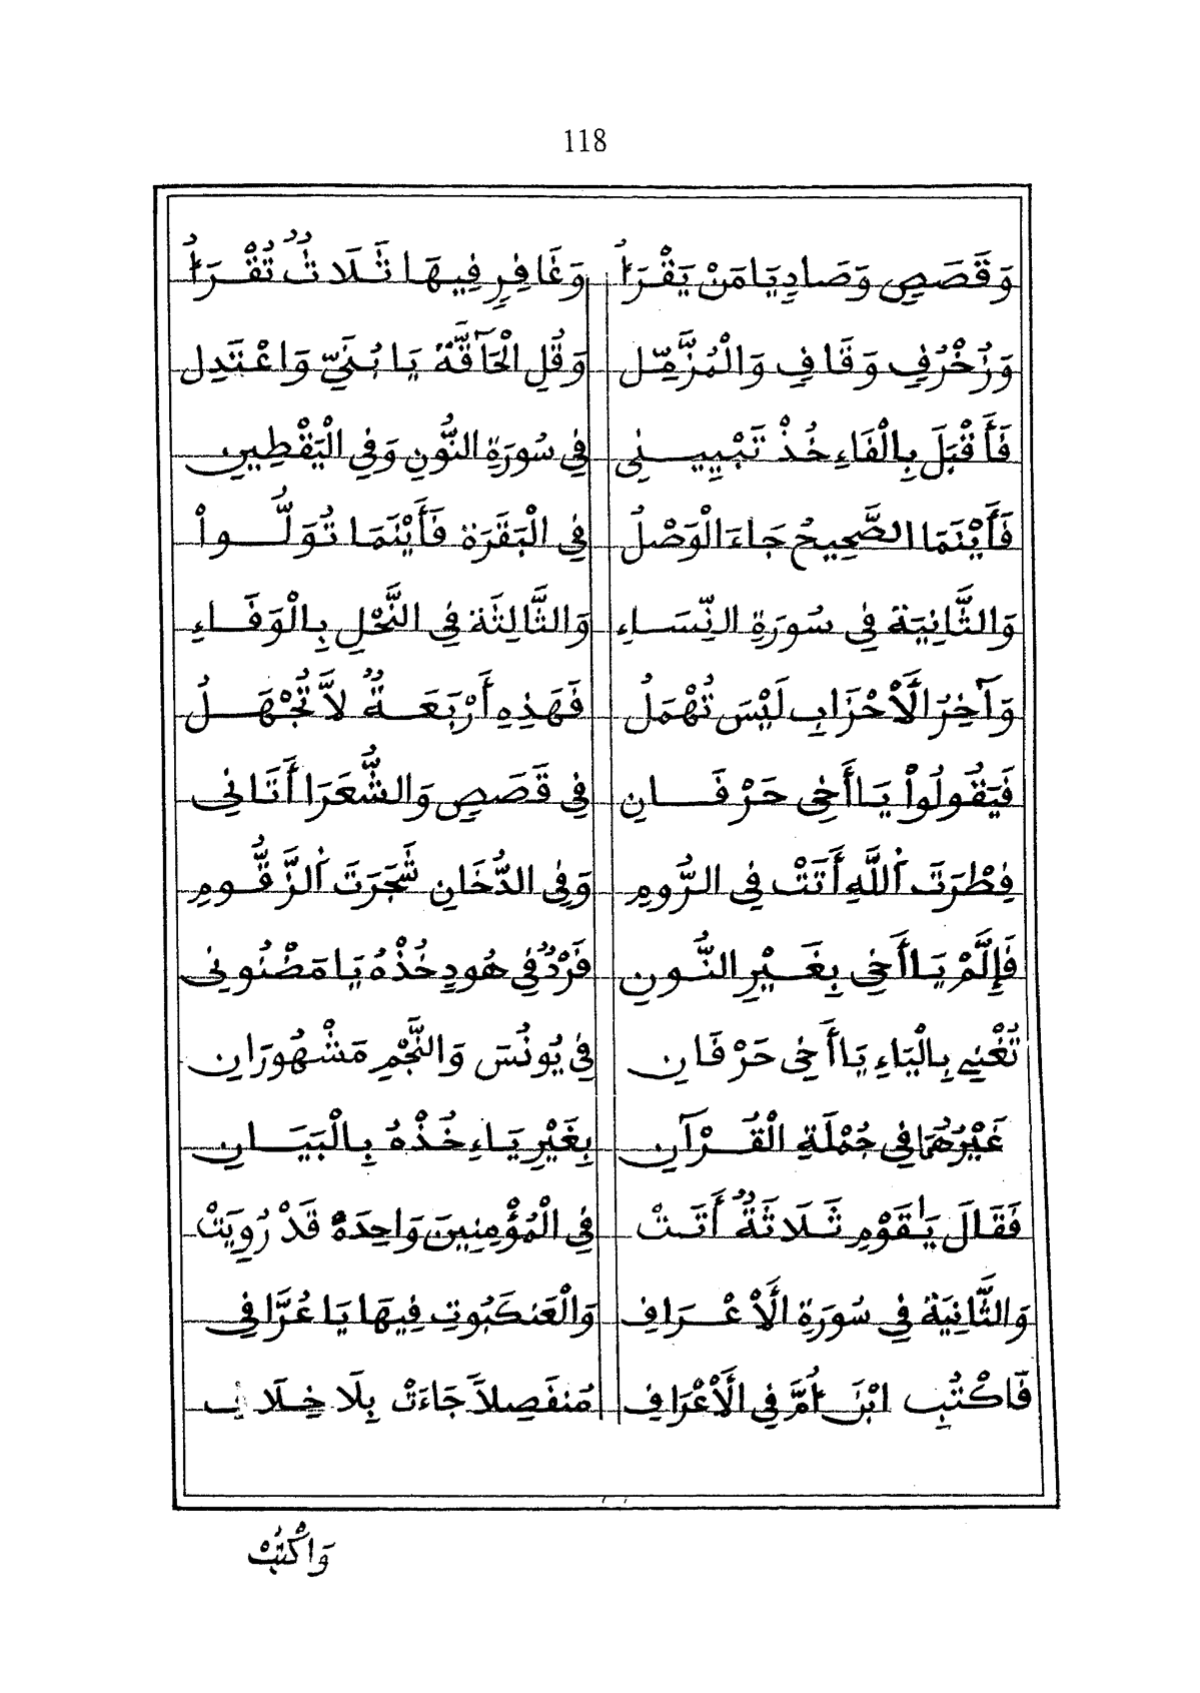 118
وَقَصَصٍ وَصَادِ يَا مَنْ يَقْرَأُ وَغَافِرٍ فِيهَا ثَلَاثٌ تُقْرَأُ
وَزُخْرُفٍ وَقَافِ وَالْمُزَّمِّلِ وَقُلِ الْحَآقَّةُ يَا بُنَيِّ وَاعْتَدِلِ
فَأَقْبَلَ بِالْفَاءِ خُذْ تَبْيِيـــنِي فِي سُورَةِ النُّونِ وَفِي الْيَقْطِينِ
فَأَيْنَمَا الصَّحِيحُ جَاءَ الْوَصْلُ فِي الْبَقَرَةِ فَأَيْنَمَا تُوَلُّـــواْ
وَالثَّانِيَةُ فِي سُورَةِ النِّسَاءِ وَالثَّالِثَةُ فِي النَّحْلِ بِالْوَفَاءِ
وَآخِرُ الَأَحْزَابِ لَيْسَ تُهْمَلُ فَهَذِهِ أَرْبَعَـةٌ لاَّ تُجْهَـلُ
فَيَقُولُواْ يَا أَخِي حَرْفَـــانِ فِي قَصَصٍ وَالشُّعَرَا أَتَانِي
فِطْرَتَ اَللَّهِ أَتَتْ فِي الرُّومِ وَفِي الدُّخَانِ شَجَرَتَ اَلزَّقُّـومِ
فَإِلَّمْ يَا أَخِي بِغَـيْرِ النُّـونِ فَرْدٌ فِي هُودٍ خُذْهُ يَا مَصْنُونِي
تُغْنِي بِالْيَاءِ يَا أَخِي حَرْفَانِ فِي يُونُسَ وَالنَّجْمِ مَشْهُورَانِ
غَيْرُهُمَا فِي جُمْلَةِ الْقُـرْآنِ بِغَيْرِ يَاءٍ خُذْهُ بِالْبَيَـانِ
فَقَالَ يَٰقَوْمِ ثَـلَاثَةٌ أَتَـتْ فِي الْمُؤْمِنِينَ وَاحِدَةٌ قَدْ رُوِيَتْ
وَالثَّانِيَةُ فِي سُورَةِ الَأَعْـرَافِ وَالْعَنكَبُوتِ فِيهَا يَا عُرَّافِي
فَاكْتُبِ ابْنَ أُمَّ فِي الَأَعْرَافِ مُنفَصِلاً جَاءَتْ بِلَا خِلَافِ
وَاكْتُبْ